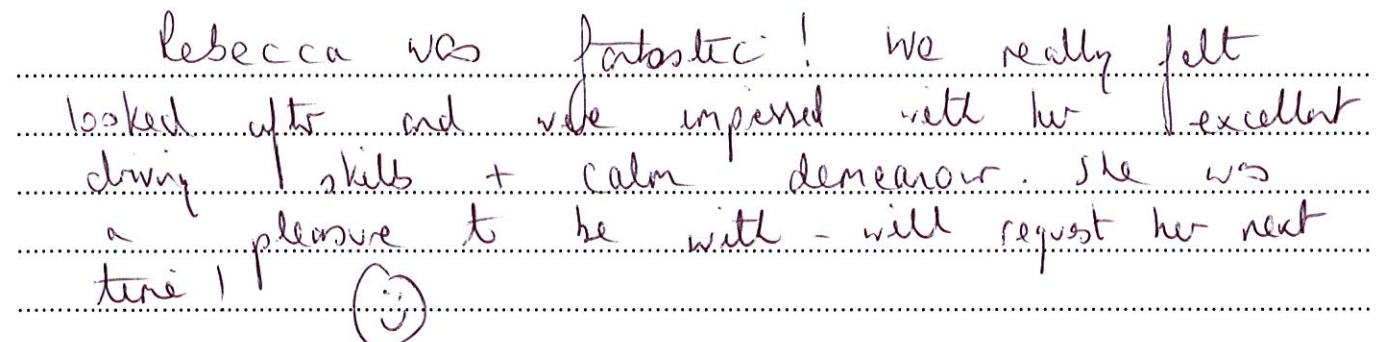 Rebecca was fantastic! We really felt
looked after and were impressed with her excellent
driving skills + calm demeanour. She was
a pleasure to be with - will request her next
time! ☺